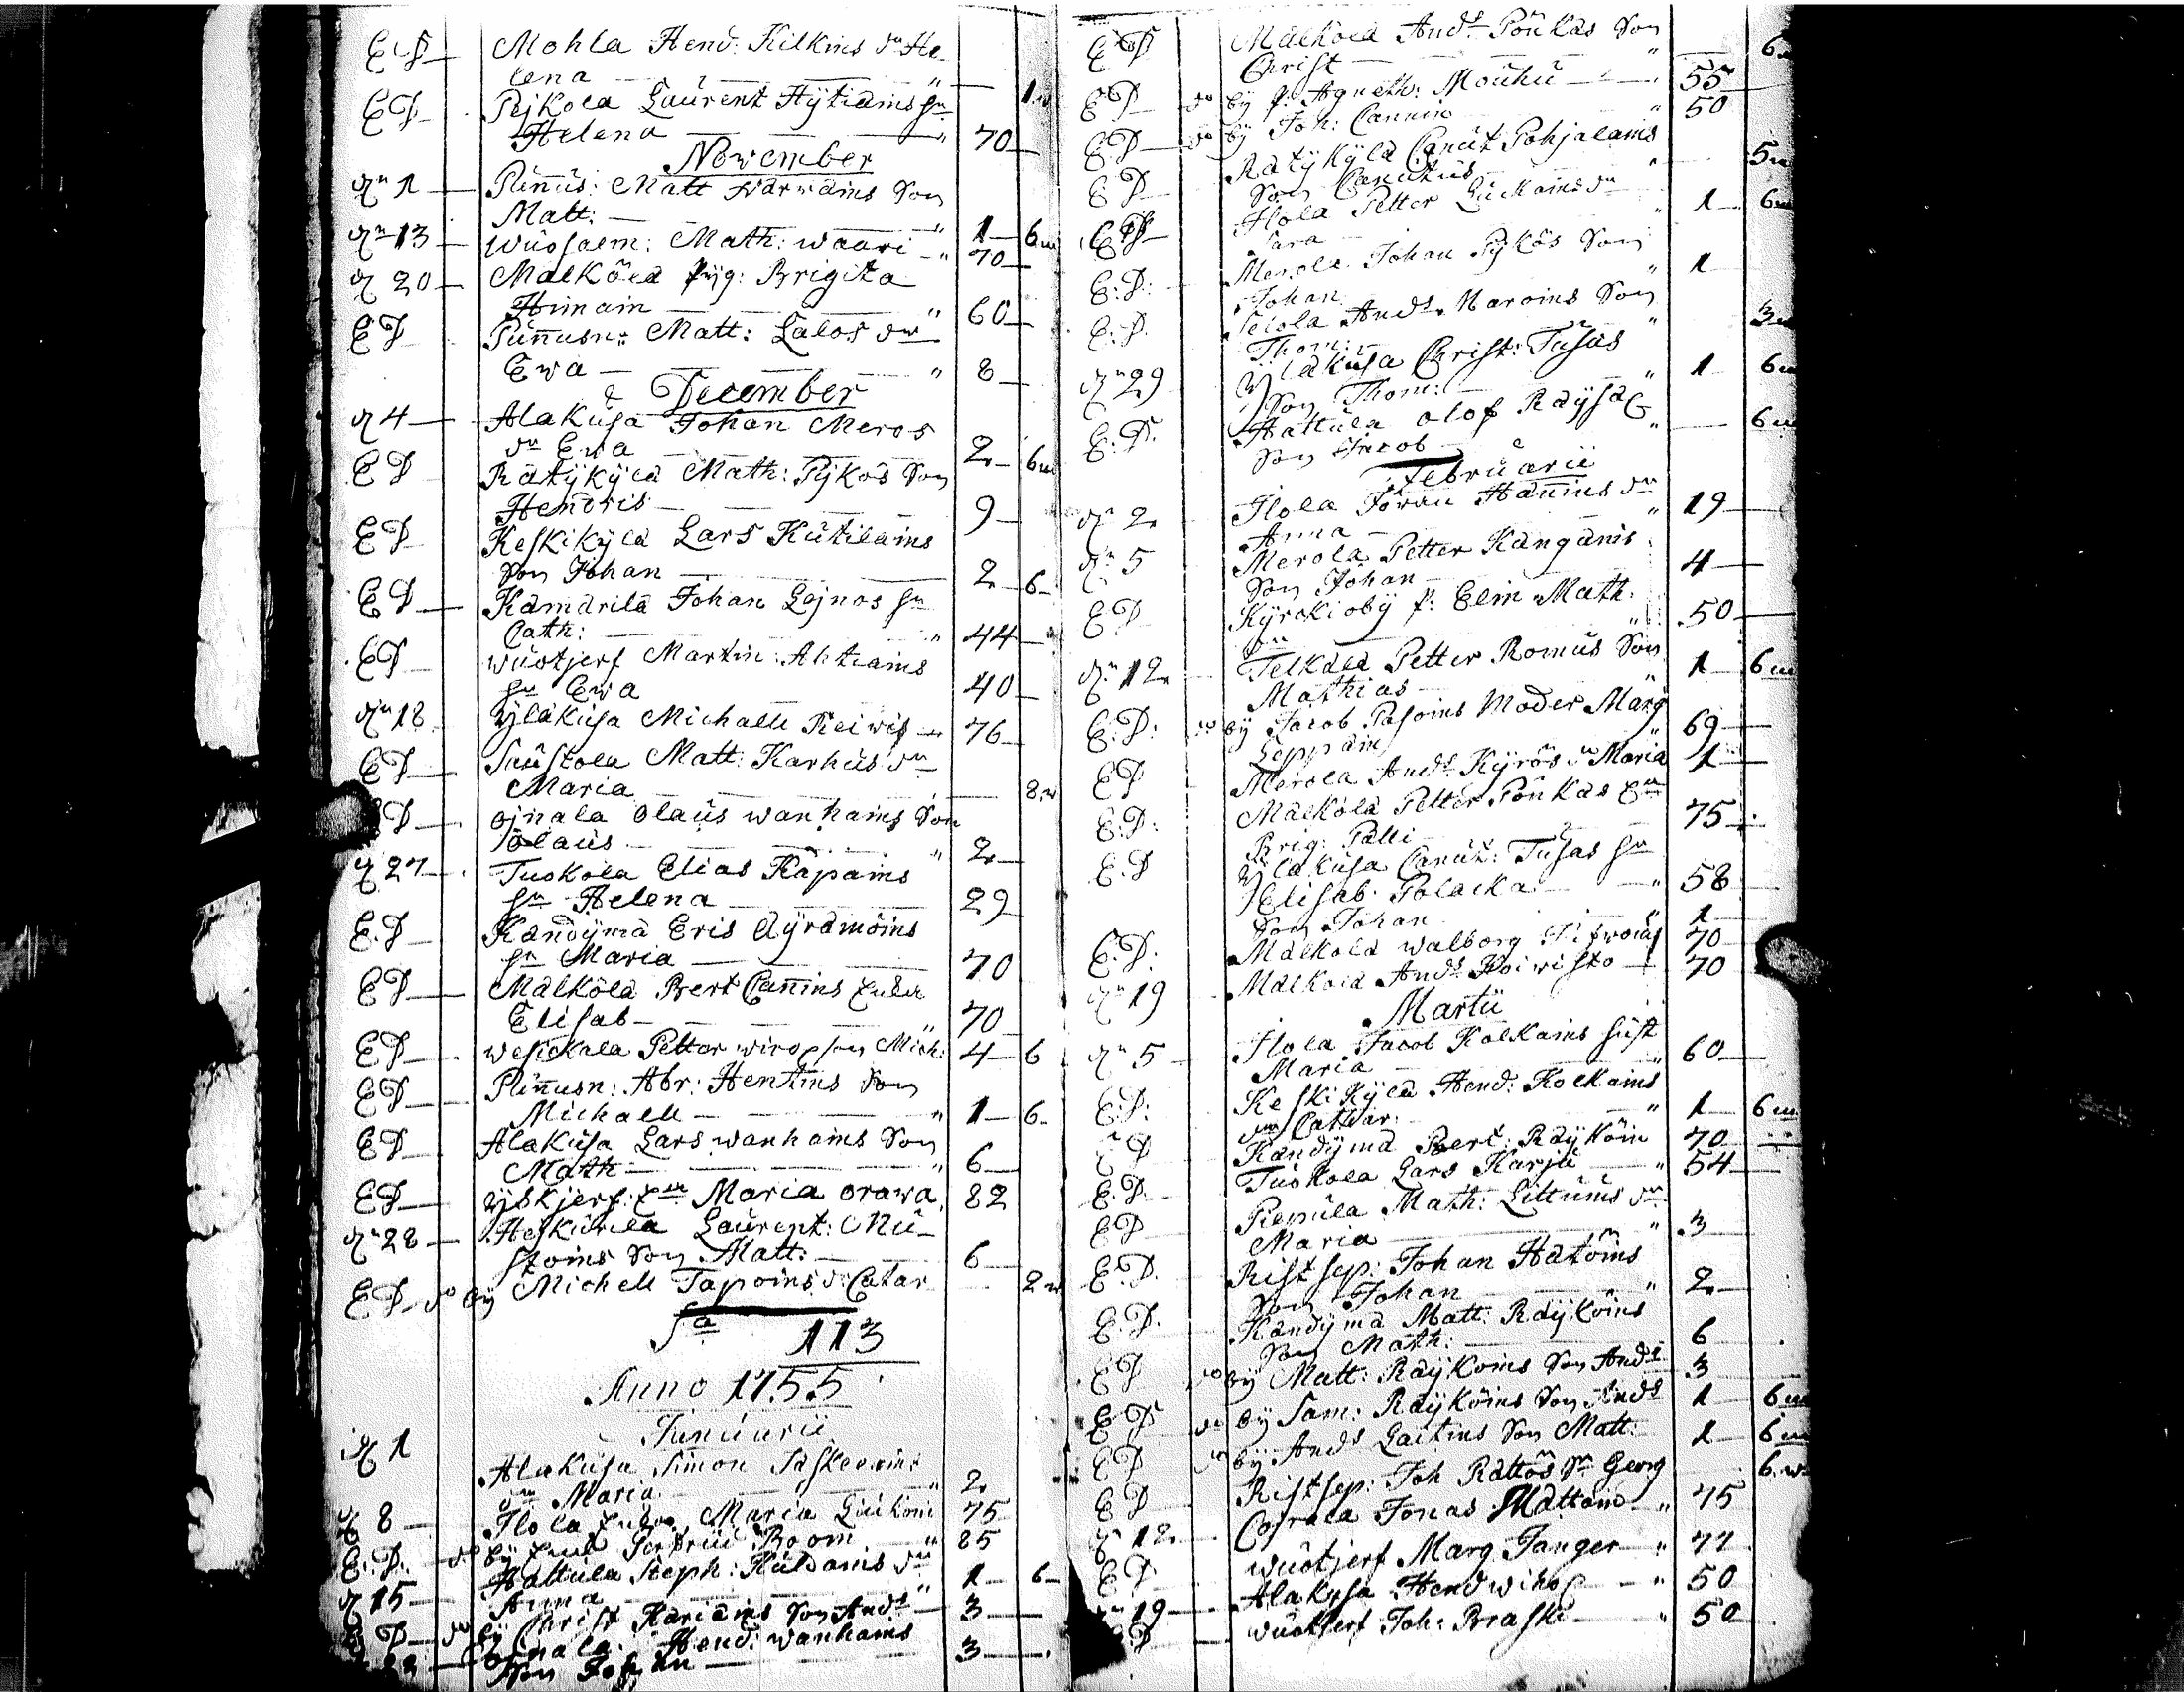 E D Mohla Hend: Kilkins dr He
lena " 1 w
E D Pejkola Laurent Hytiäins hu
Helena " 70
November
d 1 Pinnus: Matt Narwains Son
Matt: " 1 6 m
d 13 Wuosalm: Math: Waari " 70
d 20 Mälkölä Pyg: Brigita
Himain " 60
E D Pinnusn: Matt: Lalos dr
Ewa " 8
December
d 4 Alakusa Johan Meros
dr Ewa 2 6 m
E D Rätykylä Math: Pykös Son
Hendris 9
E D Keskikylä Lars Kutilains
Son Johan 2 6
E D Kämärilä Johan Lejnos hu
Cath: " 44
E D Wuotjerf Martin Ahtiains
hu Ewa 40
d 18 Yläkusa Michell Reiwis 76
E D Suustola Matt: Karhus dr
Maria 8 w
E D Ojnala Olaus Wanhains Son
Olaus " 2
d 27 Tuokola Elias Käpains
hu Helena 29
E D Kandyma Eris Äyrämöins
hu Maria 70
E D Mälkölä Bert Cannins Enka
Elisab " 70
E D Wesickala Petter Wirop son Mich: 4 6
E D Pinnusn: Abr: Hentins Son
Michell " 1 6
E D Alakusa Lars Wanhains Son
Math " 6
E D Yskjerf: Maria Orawa 82
d 28 Heskurila Laurent: Mu-
stoins Son Matt: 6
E D do by Michell Tapoins d: Catar 2 w
Sa 113
Anno 1755
Januarii
d 1 Alakusa Simon Jäskeläins
dr Maria " 2
d 8 Ilola Enka Maria Luikoin 75
E: D. do by Gertrud Room " 85
d 15 Hattula Steph: Kuldains dr
Anna " 1 6
E D do by Christ Kariains Son Ands 3
Ojnala Hend: Wanhains
Son Johan 3
E D Mälkölä Ands Pönkäs Son
Christ " 6
E D do by f: Agneth: Mouhu 55
E D do by Joh: Cannin " 50
E D Rätykylä Canut Pohjalains
Son Canutus " 5 w
E D Ilola Petter Luckains dr
Sara " 1 6 m
E: D: Merola Johan Pykös Son
Johan " 1
E: D. Telola Ands Maroins Son
Thom: " 3 w
d 29 Yläkusa Christ: Tusas
Son Thom: " 1 6 m
E: D. Hattula Olof Räysä
Son Jacob " 6 m
Februarii
d 2 Ilola Jöran Hanins dr
Anna " 19
d 5 Merola Petter Kangains
Son Johan 4
E D Kyrckioby f: Elin Math:
dr " 50
d 12 Telkälä Petter Romus Son
Mathias " 1 6 m
E: D: do by Jacob Pasoins Moder Marg
Leppäin " 69
E D Merola Ands Kyrös dr Maria 1
E: D: Mälkölä Petter Pönkäs
Brig: Pälli 75
E: D Yläkusa Canut: Tusas hu
Elisab: Polacka " 58
Son Johan " 1
E: D: Mälkölä Walborg 70
d 19 Mälkölä Ands Koiwisto 70
Martii
d 5 Ilola Jacob Kolkains hust
Maria " 60
E: D: Keskikylä Hend: Kolkains
dr Cathar: " 1 6 m
E D Kandyma Bert: Räyköin 70
E: D. Tuokola Lars Karju " 54
E D Repula Math: Littuns dr
Maria " 3
E: D. Ristsep: Johan Hatöins
Son Johan " 2
E: D. Kandyma Matt: Räyköins
Son Math: 6
E D do by Matt: Räyköins Son Ands 3
E D do by Sam: Räyköins Son Ands 1 6 m
E D do by Ands Laitins Son Matt: 1 6 m
E D Ristsep: Joh Rättös Sn Georg 6 w
d 12 Cojrala Jonas Mattain " 75
E D Wuotjerf Marg Tanger " 77
d 19 Alakysa Hend Wihop " 50
E D Wuotjerf Joh: Braski " 50